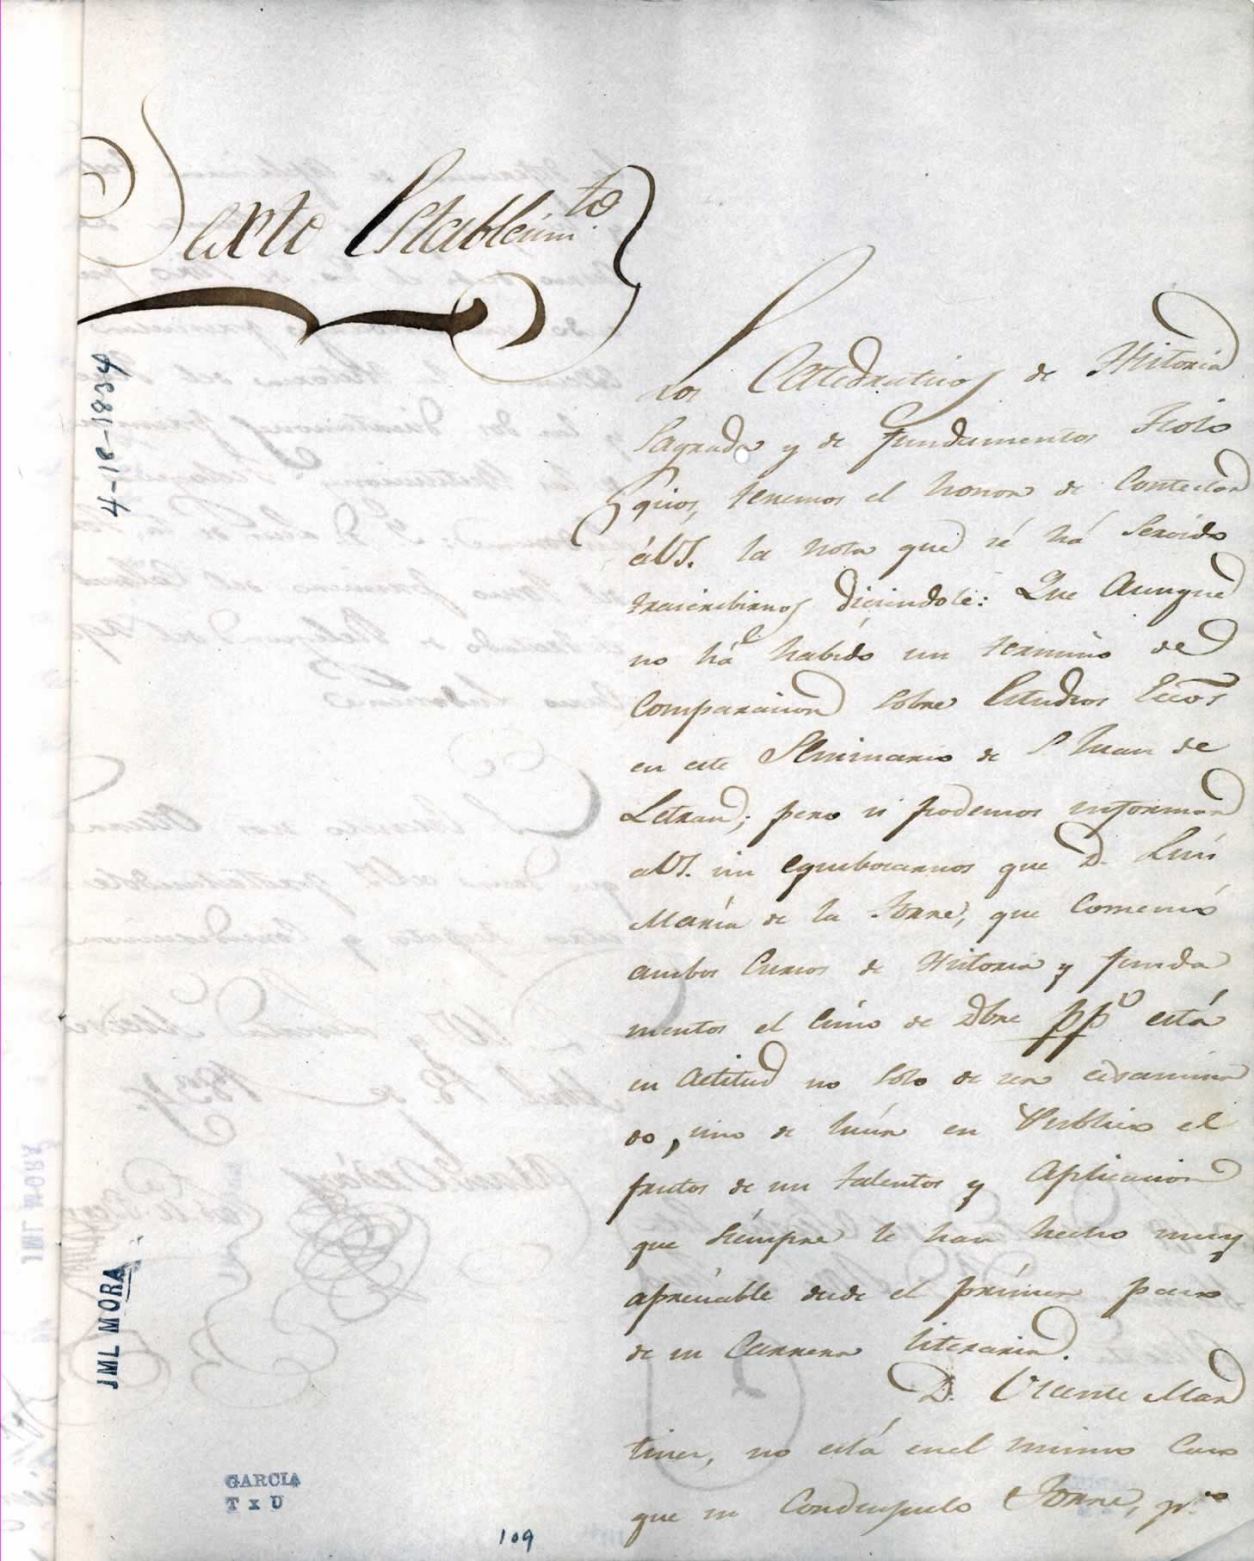 Sexto Establecim.to
Los Catedraticos de Historia
Sagrada y de fundamentos Teolo
gicos, tenemos el honor de Contestar
á VS. la nota que se há servido
trascribirnos diciendole: Que Aunque
no há habido un termino de
Comparacion sobre Estudios Eccos
en este Seminario de S Juan de
Letran; pero si podemos informar
a VS. sin equibocarnos que D. Luis
María de la Torre, que Comenzó
ambos Cursos de Historia y funda
mentos el cinco de Dbre ppo está
en actitud no solo de ser ecsamina
do, sino de lucir en Publico el
frutos de sus talentos y Aplicacion
que siempre le han hecho muy
apreciable desde el primer paso
de su Carrera literaria.
D. Vicente Mar
tinez, no está en el mismo Caso
que su Condiscipulo Torre, pr
4-18-1834
JML MORA
GARCIA
T x U
109